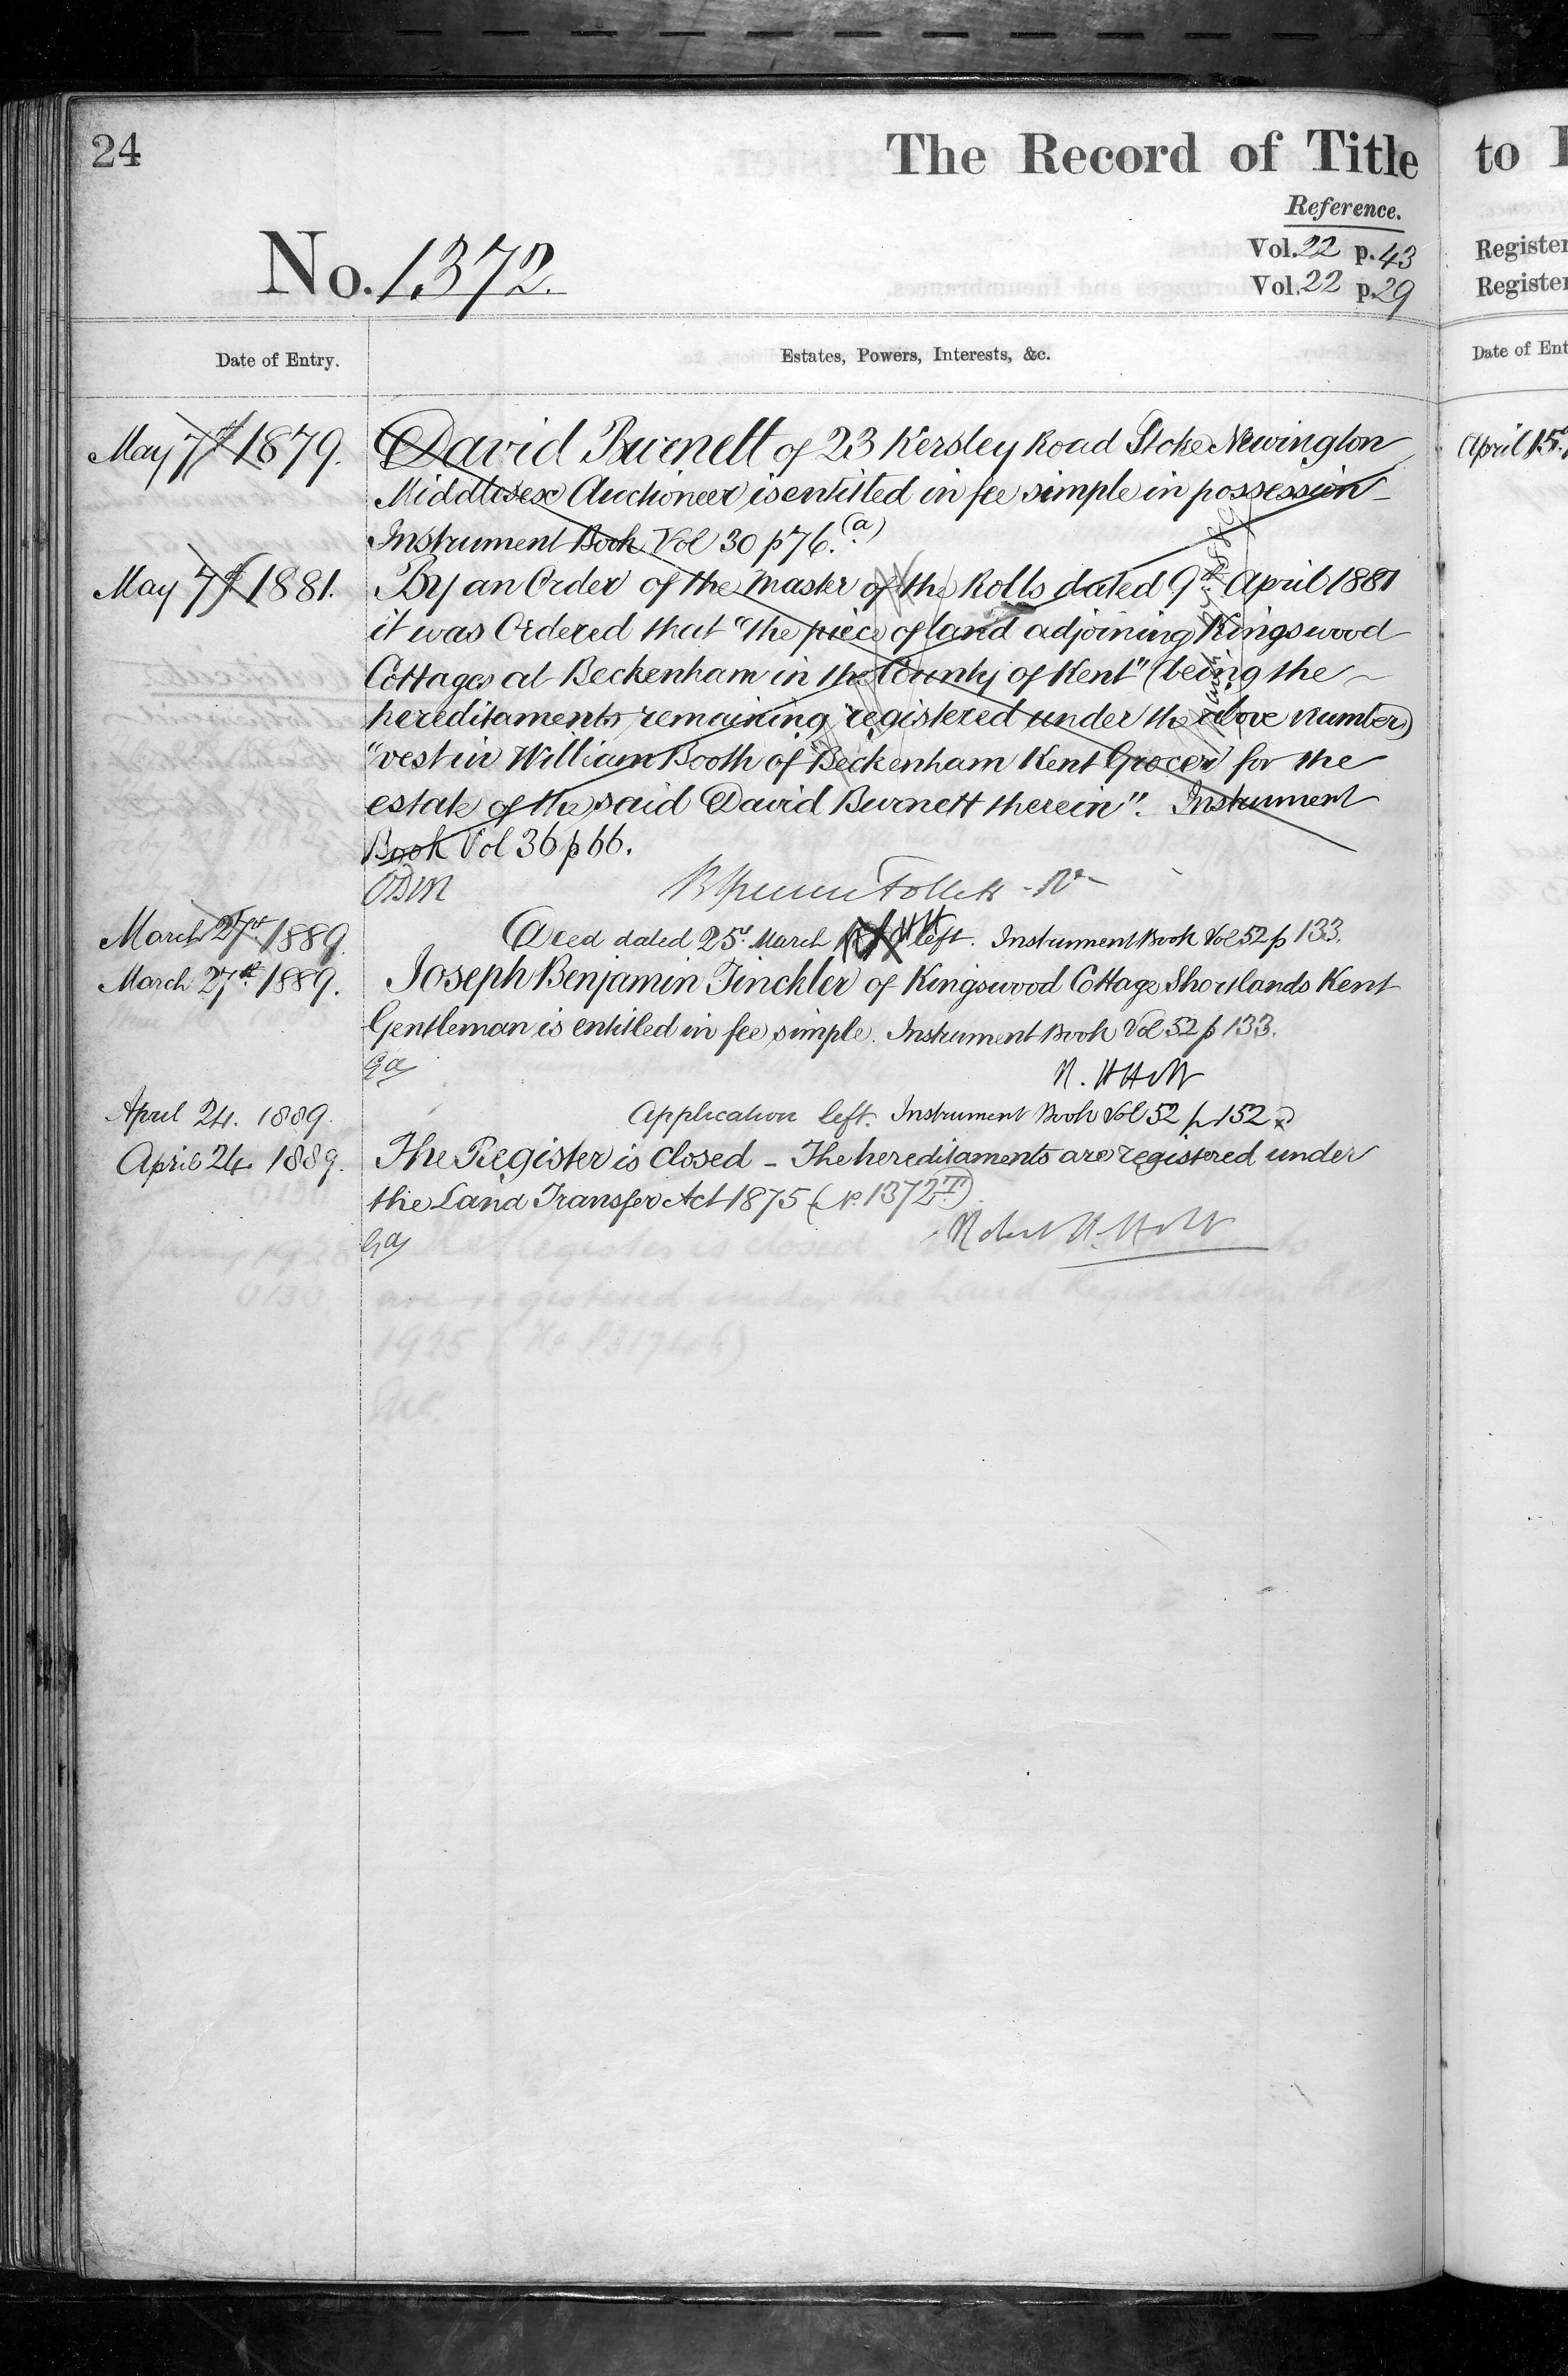 24
The Record of Title
Reference.
No. 1372.
Vol. 22 p. 43
Vol. 22 p. 29
Date of Entry.
Estates, Powers, Interests, &c.
May 7th 1879.
David Burnett of 23 Kersley Road Stoke Newington
Middlesex Auctioneer is entitled in fee simple in possession
Instrument Book Vol 30 p 76. (a)
May 7th 1881.
By an Order of the Master of the Rolls dated 9th April 1881
it was Ordered that "the piece of land adjoining Kingswood
Cottages at Beckenham in the County of Kent" (being the
hereditaments remaining registered under the above number)
"vest in William Booth of Beckenham Kent Grocer for the
estate of the said David Burnett therein". Instrument
Book Vol 36 p 66.
March 27th 1889
Deed dated 25th March left. Instrument Book Vol 52 p 133.
March 27th 1889.
Joseph Benjamin Tinckler of Kingswood Cottage Shortlands Kent
Gentleman is entitled in fee simple. Instrument Book Vol 52 p 133.
April 24. 1889.
Application left. Instrument Book Vol 52 p 152
April 24 1889.
The Register is closed - The hereditaments are registered under
the Land Transfer Act 1875 (No. 1372 T)
Robert H. Holt
to
Register
Register
Date of Ent
April 15